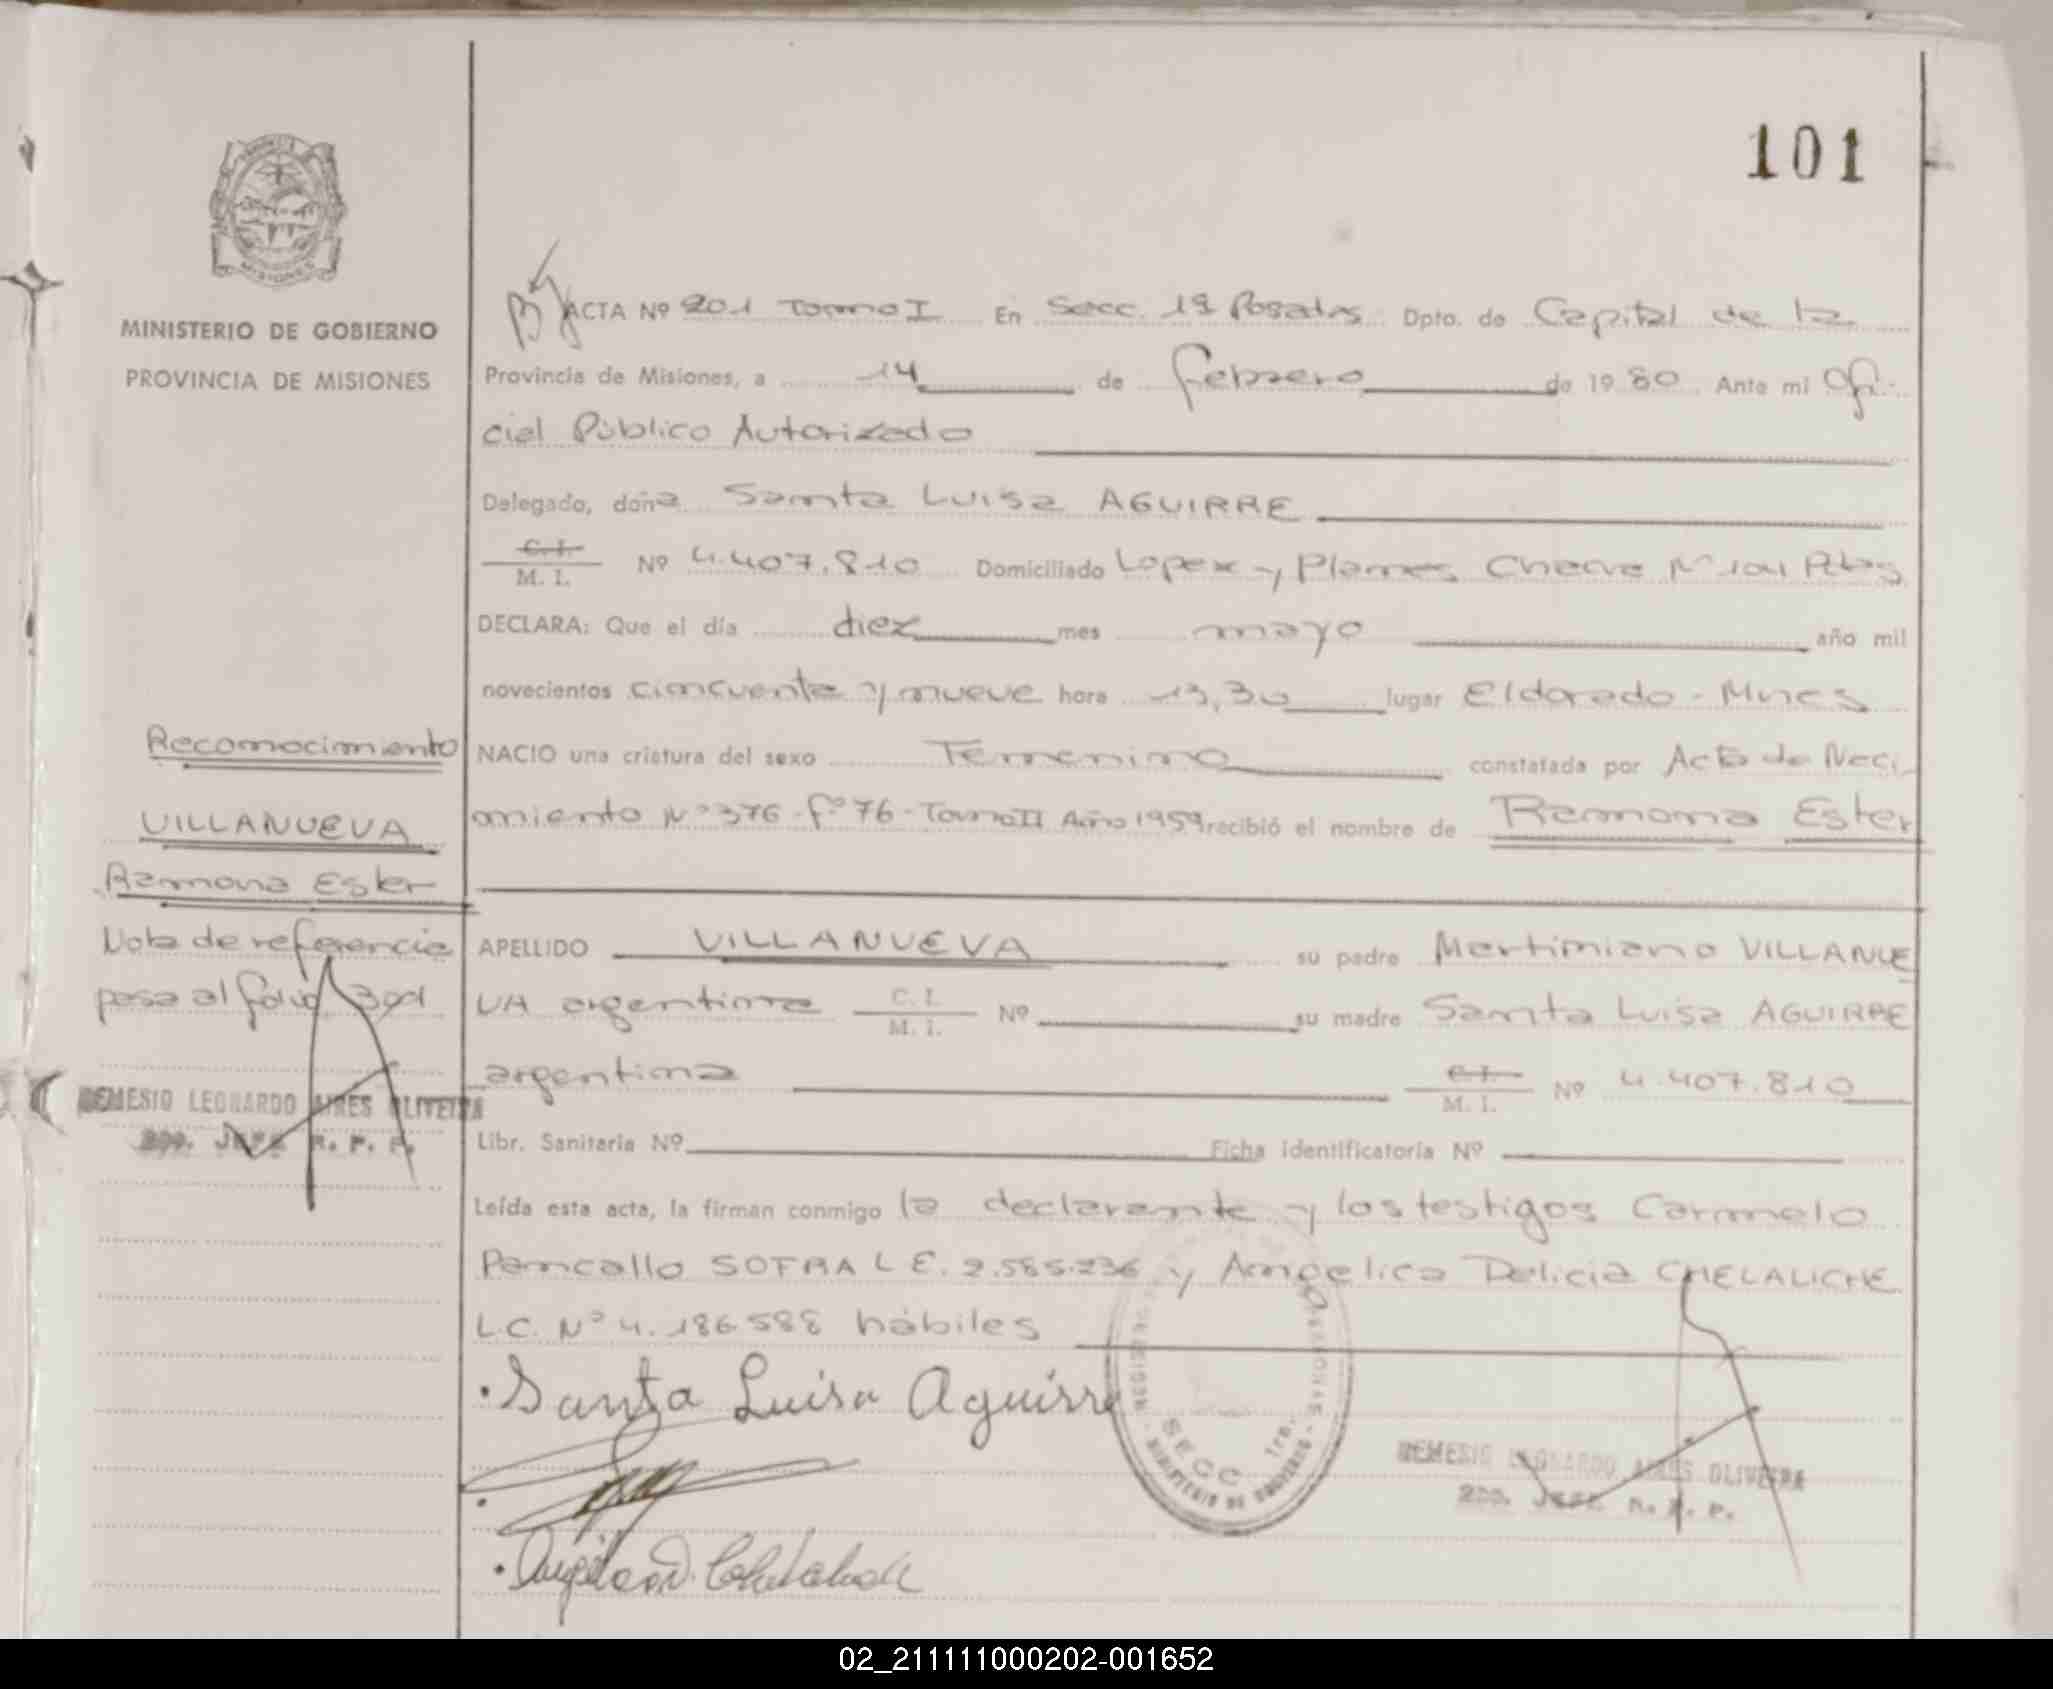 101
MISIONES
MINISTERIO DE GOBIERNO
PROVINCIA DE MISIONES
Reconocimiento
VILLANUEVA
Ramona Ester
Nota de referencia
pasa al folio 301
NEMESIO LEONARDO AIRES OLIVEIRA
2DO. JEFE R. P. P.
ACTA Nº 201 Tomo I En Secc. 1ª Posadas Dpto. de Capital de la
Provincia de Misiones, a 14 de febrero de 1980 Ante mi Ofi-
cial Público Autorizado
Delegado, doña Santa Luisa AGUIRRE
C. I. M. I. Nº 4.407.810 Domiciliado Lopez y Planes Chacra Nº 101 Pdas
DECLARA: Que el día diez mes mayo año mil
novecientos cincuenta y nueve hora 13,30 lugar Eldorado - Mnes
NACIO una criatura del sexo Femenino constatada por Acta de Naci-
miento Nº 376 - fº 76 - Tomo II Año 1959 recibió el nombre de Ramona Ester
APELLIDO VILLANUEVA su padre Martimiano VILLANUE
VA argentina C. I. M. I. Nº su madre Santa Luisa AGUIRRE
argentina C. I. M. I. Nº 4.407.810
Libr. Sanitaria Nº Ficha identificatoria Nº
Leída esta acta, la firman conmigo la declarante y los testigos Carmelo
SOTRA L E. 2.585.236 y Angelica Delicia CHELALICHE
L.C. Nº 4.186.588 hábiles
Santa Luisa Aguirre
SECC. 1ra.
MINISTERIO DE GOBIERNO
NEMESIO LEONARDO AIRES OLIVEIRA
2DO. JEFE R. P. P.
02_211111000202-001652